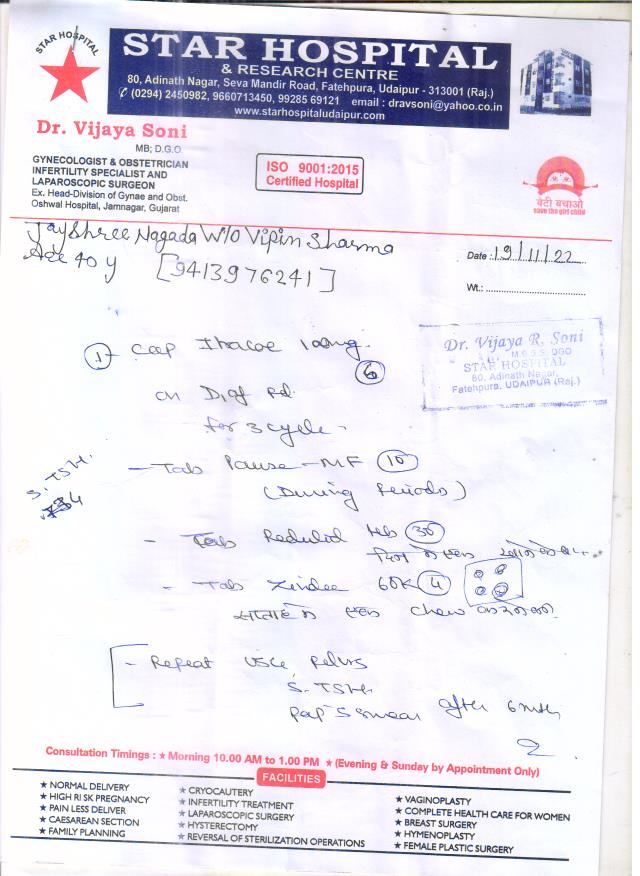 STAR HOSPITAL
STAR HOSPITAL
& RESEARCH CENTRE
80, Adinath Nagar, Seva Mandir Road, Fatehpura, Udaipur - 313001 (Raj.)
(0294) 2450982, 9660713450, 99285 69121 email : dravsoni@yahoo.co.in
www.starhospitaludaipur.com
Dr. Vijaya Soni
MB; D.G.O.
GYNECOLOGIST & OBSTETRICIAN
INFERTILITY SPECIALIST AND
LAPAROSCOPIC SURGEON
Ex. Head-Division of Gynae and Obst.
Oshwal Hospital, Jamnagar, Gujarat
ISO 9001:2015
Certified Hospital
बेटी बचाओ
save the girl child
JayShree Nagada W/O Vipin Sharma
Age 40 y [9413976241]
Date : 19/11/22
Wt.:
Dr. Vijaya R. Soni
M.B.B.S. DGO
STAR HOSPITAL
80, Adinath Nagar,
Fatehpura, UDAIPUR (Raj.)
1- Cap 100mg
6
on
for 3 cycle
- Tab Pause-MF 10
(During Periods)
S. TSH.
- Tab 30
- Tab 60K 4
chew
- Repeat
S. TSH
Pap Smear after 6
Consultation Timings : ★ Morning 10.00 AM to 1.00 PM ★ (Evening & Sunday by Appointment Only)
FACILITIES
★ NORMAL DELIVERY
★ HIGH RI SK PREGNANCY
★ PAIN LESS DELIVER
★ CAESAREAN SECTION
★ FAMILY PLANNING
★ CRYOCAUTERY
★ INFERTILITY TREATMENT
★ LAPAROSCOPIC SURGERY
★ HYSTERECTOMY
★ REVERSAL OF STERILIZATION OPERATIONS
★ VAGINOPLASTY
★ COMPLETE HEALTH CARE FOR WOMEN
★ BREAST SURGERY
★ HYMENOPLASTY
★ FEMALE PLASTIC SURGERY